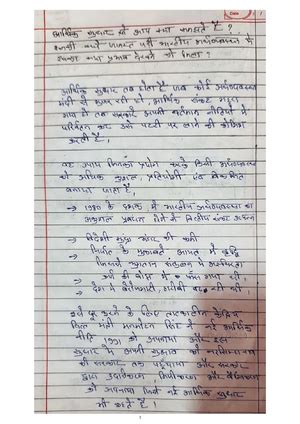 आर्थिक सुधार से आप क्या समझते हैं ?
इसकी क्यों जरूरत पड़ी भारतीय अर्थव्यवस्था में
इसका क्या प्रभाव देखने को मिला ?
आर्थिक सुधार तब होता है जब कोई अर्थव्यवस्था
मंदी से गुजर रही हो, आर्थिक संकट गहरा
गया हो तब सरकारें अपनी वर्तमान नीतियों में
परिवर्तन कर उसे पटरी पर लाने की कोशिश
करती हैं।
वह उपाय जिनका प्रयोग करके किसी अर्थव्यवस्था
को अधिक कुशल, प्रतियोगी एवं विकसित
बनाया जाता है,
→ 1980 के दशक में भारतीय अर्थव्यवस्था का
अकुशल प्रबंधन होने से वित्तीय संकट उत्पन्न
→ विदेशी मुद्रा भंडार की कमी
→ निर्यात के मुकाबले आयात में वृद्धि
जिससे भुगतान संतुलन में
कर्ज के बोझ में फंस गया था
→ देश में बेरोजगारी, गरीबी बढ़ रही थी
इसे दूर करने के लिए तत्कालीन केंद्रीय
वित्त मंत्री मनमोहन सिंह ने नई आर्थिक
नीति 1991 को अपनाया और इस
सुधार में आगे
की सरकार तक पहुंचाया और सरकार
द्वारा उदारीकरण, निजीकरण और वैश्वीकरण
को अपनाया जिसे नई आर्थिक सुधार
भी कहते हैं।
1